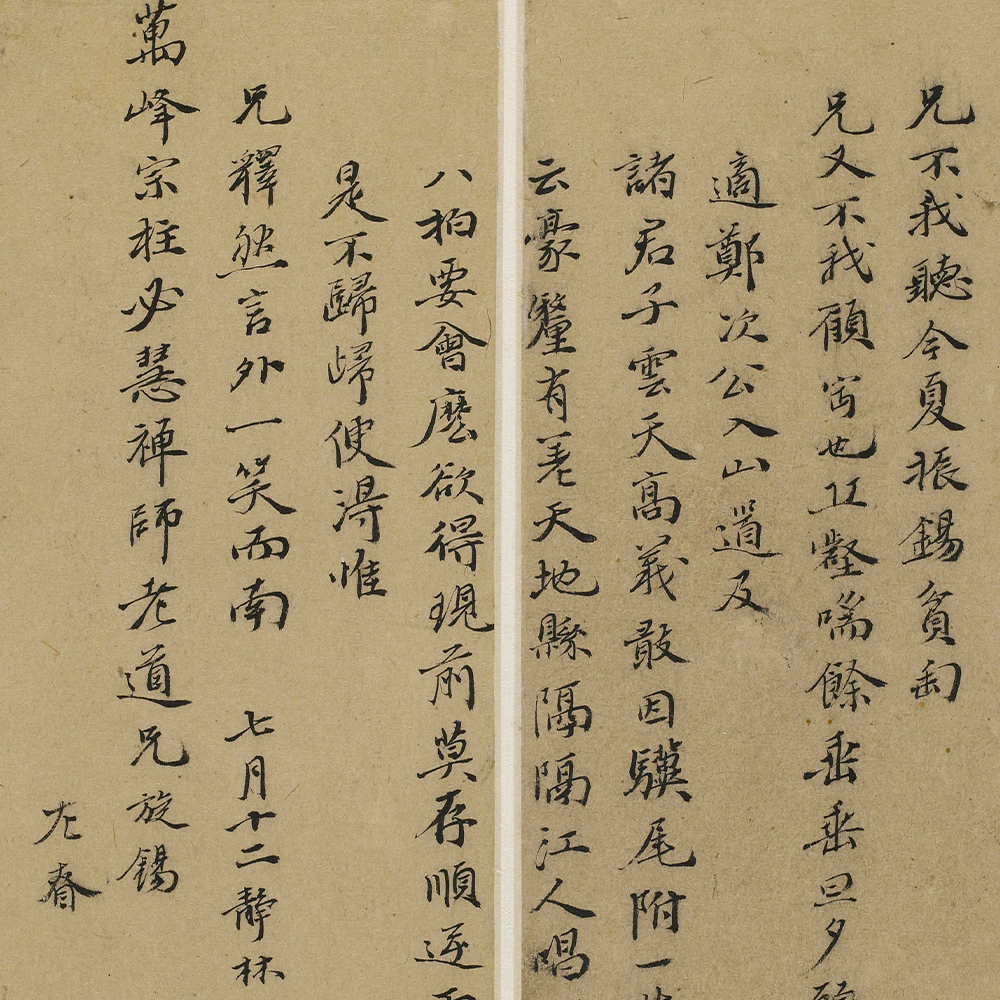 兄不我聽今夏振錫貧
兄又不我顧 也 喘餘垂垂旦夕
適鄭次公入山道及
諸君子雲天高義敢因驥尾附一
云豪釐有差天地懸隔隔江人唱
八拍要會麼欲得現前莫存順逆
是不歸歸便得惟
兄釋然言外一笑而南 七月十二靜林
萬峰宗柱必慧禅師老道兄旋錫
左春